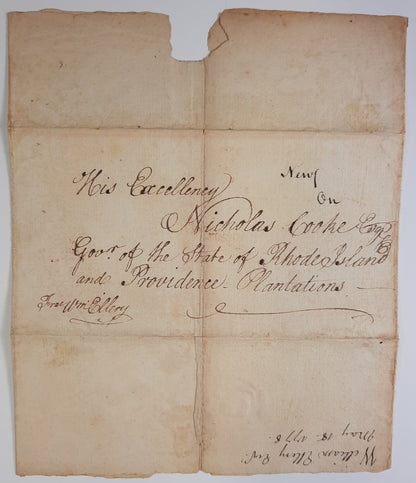 His Excellency
On
Nicholas Cooke Esqr
Govr. of the State of Rhode Island
and Providence Plantations
Free Wm Ellery
William Ellery Esqr.
May 18. 1778.